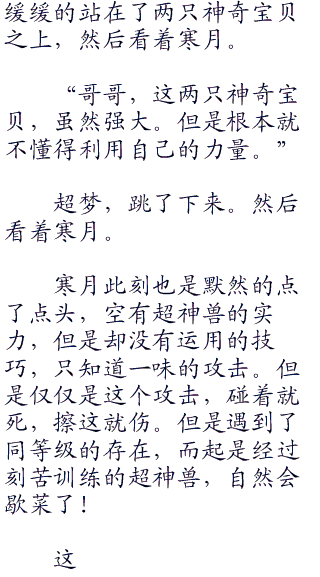 缓缓的站在了两只神奇宝贝
之上，然后看着寒月。
“哥哥，这两只神奇宝
贝，虽然强大。但是根本就
不懂得利用自己的力量。”
超梦，跳了下来。然后
看着寒月。
寒月此刻也是默然的点
了点头，空有超神兽的实
力，但是却没有运用的技
巧，只知道一味的攻击。但
是仅仅是这个攻击，碰着就
死，擦这就伤。但是遇到了
同等级的存在，而起是经过
刻苦训练的超神兽，自然会
歇菜了！
这